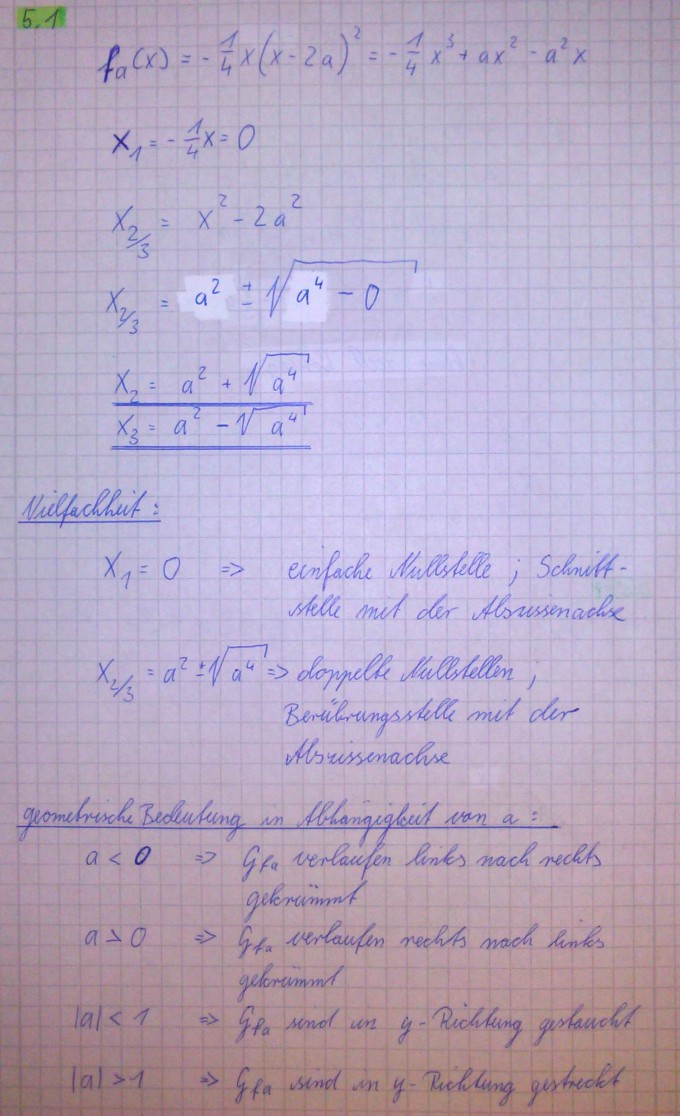 5.1
fₐ(x) = - 1/4 x(x - 2a)² = - 1/4 x³ + ax² - a²x
x₁ = - 1/4 x = 0
x₂/₃ = x² - 2a²
x₂/₃ = a² ± √(a⁴ - 0)
x₂ = a² + √(a⁴)
x₃ = a² - √(a⁴)
Vielfachheit:
x₁ = 0 => einfache Nullstelle ; Schnitt-
stelle mit der Abszissenachse
x₂/₃ = a² ± √(a⁴) => doppelte Nullstellen ;
Berührungsstelle mit der
Abszissenachse
geometrische Bedeutung in Abhängigkeit von a :
a < 0 => G_fa verlaufen links nach rechts
gekrümmt
a > 0 => G_fa verlaufen rechts nach links
gekrümmt
|a| < 1 => G_fa sind in y-Richtung gestaucht
|a| > 1 => G_fa sind in y-Richtung gestreckt